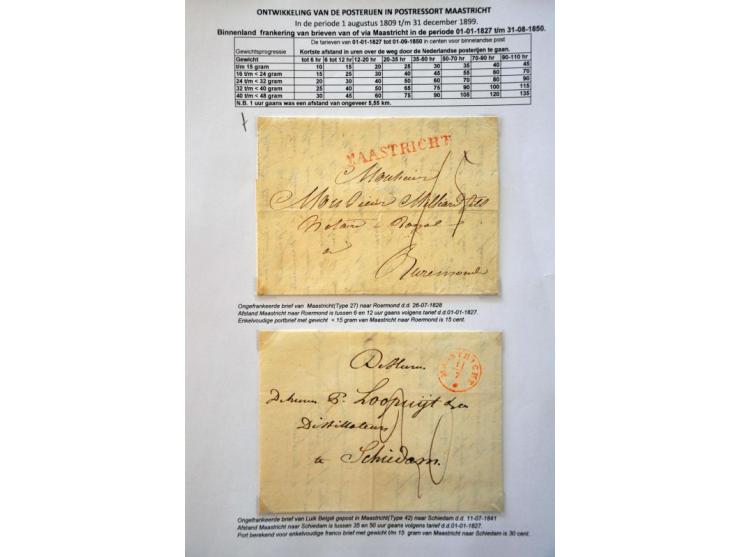 ONTWIKKELING VAN DE POSTERIJEN IN POSTRESSORT MAASTRICHT
In de periode 1 augustus 1809 t/m 31 december 1899.
Binnenland frankering van brieven van of via Maastricht in de periode 01-01-1827 t/m 31-08-1850.
De tarieven van 01-01-1827 tot 01-09-1850 in centen voor binnenlandse post
Gewichtsprogressie Kortste afstand in uren over de weg door de Nederlandse posterijen te gaan.
Gewicht tot 6 hr 6 tot 12 hr 12-20 hr 20-35 hr 35-50 hr 50-70 hr 70-90 hr 90-110 hr
t/m 15 gram 10 15 20 25 30 35 40 45
16 t/m < 24 gram 15 25 30 40 45 55 60 70
24 t/m < 32 gram 20 30 40 50 60 70 80 90
32 t/m < 40 gram 25 40 50 65 75 90 100 115
40 t/m < 48 gram 30 45 60 75 90 105 120 135
N.B. 1 uur gaans was een afstand van ongeveer 5,55 km.
MAASTRICHT
Monsieur
Monsieur
Notaire Royal
a
Ruremonde
Ongefrankeerde brief van Maastricht(Type 27) naar Roermond d.d. 26-07-1828
Afstand Maastricht naar Roermond is tussen 6 en 12 uur gaans volgens tarief d.d.01-01-1827.
Enkelvoudige portbrief met gewicht < 15 gram van Maastricht naar Roermond is 15 cent.
MAASTRICHT
11
7
De Heer
De heer P. Loopuijt
Distillateur
te Schiedam.
Ongefrankeerde brief van Luik België gepost in Maastricht(Type 42) naar Schiedam d.d. 11-07-1841
Afstand Maastricht naar Schiedam is tussen 35 en 50 uur gaans volgens tarief d.d.01-01-1827.
Port berekend voor enkelvoudige franco brief met gewicht t/m 15 gram van Maastricht naar Schiedam is 30 cent.